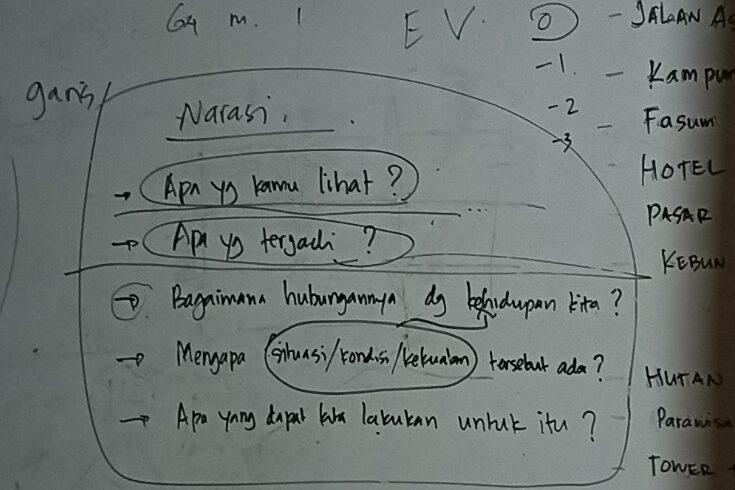 G4 m. 1
E V. 0
-1.
-2
-3
- JALAN AS
- Kampun
- Fasum
HOTEL
PASAR
KEBUN
HUTAN
- Parawisa
- TOWER
garis
Narasi.
→ Apa yg kamu lihat?
→ Apa yg terjadi ?
→ Bagaimana hubungannya dg kehidupan kita?
→ Mengapa (situasi/kondisi/kekuatan) tersebut ada?
→ Apa yang dapat kita lakukan untuk itu?